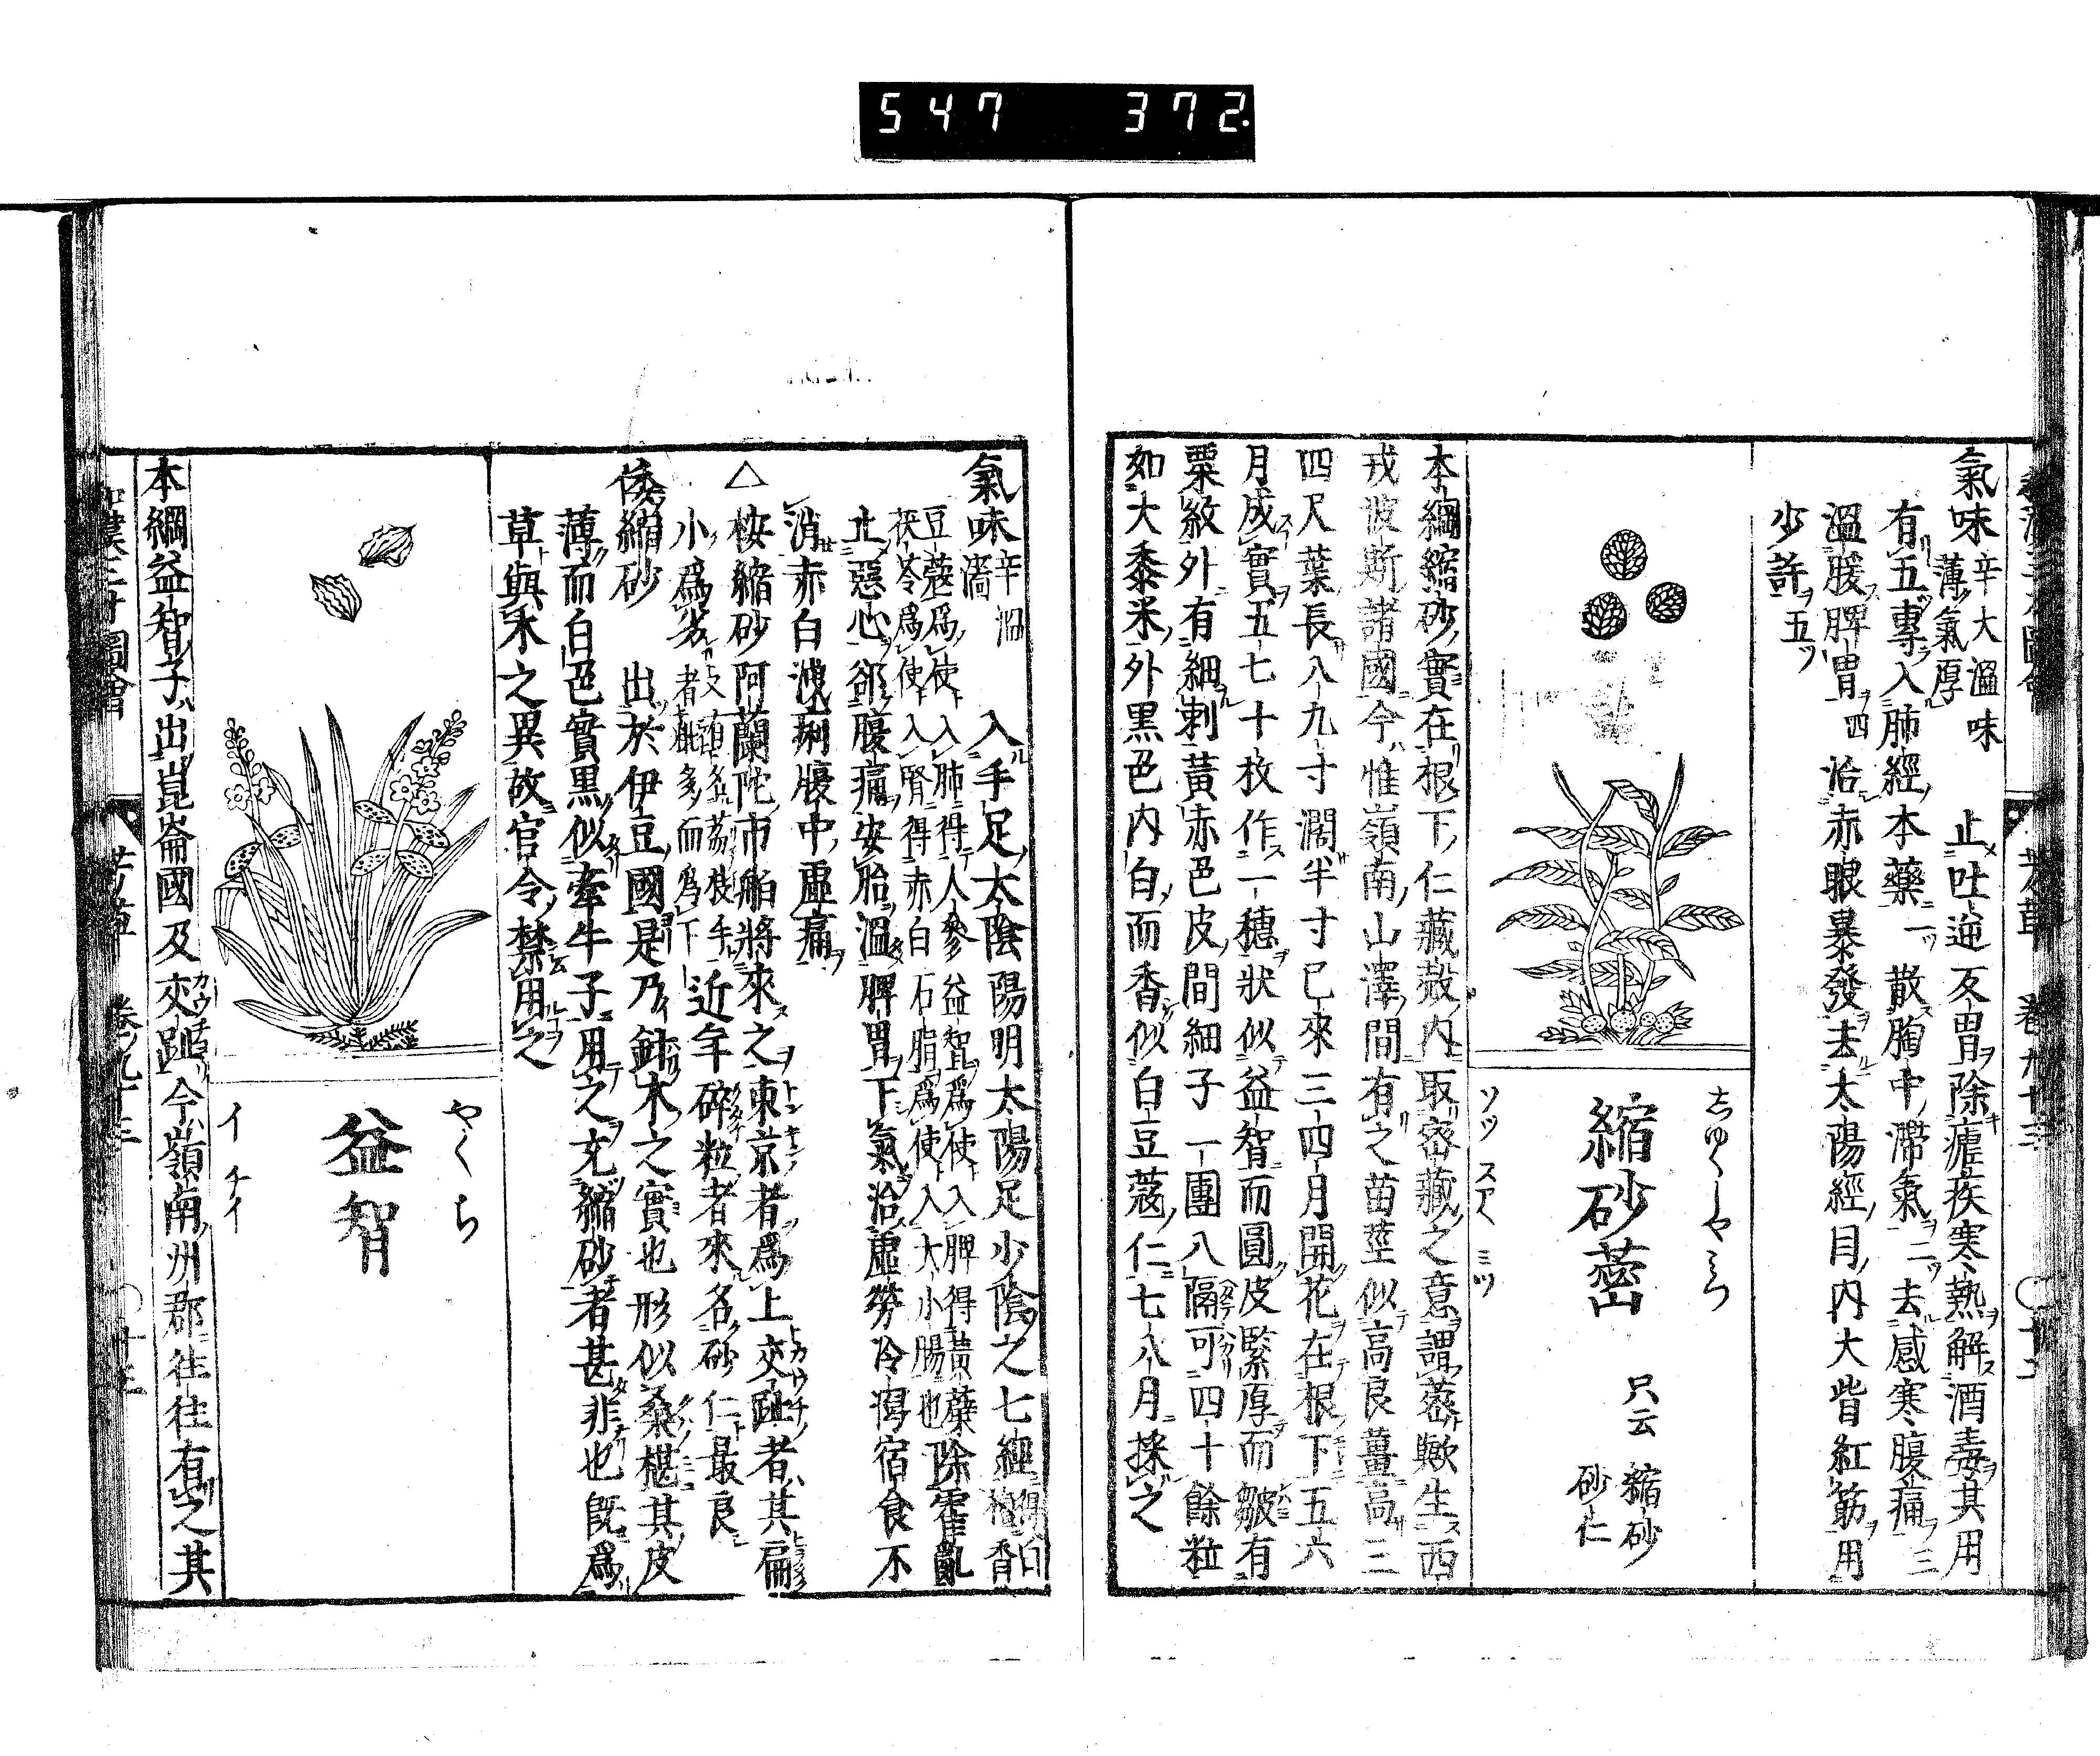 547 372.
氣味 辛大溫味薄氣厚 止吐逆反胃除瘧疾寒熱解酒毒其用
有五專入肺經本藥一 散胸中滯氣二 去感寒腹痛三
溫暖脾胃四 治赤眼暴發去太陽經目內大眥紅筋用
少許五
縮砂蔤
只云 縮砂
砂仁
ソツ スア ミツ
本綱縮砂實在根下仁藏殼內取密藏之意謂蔤歟生西
戎波斯諸國今惟嶺南山澤間有之苗莖似高良薑高三
四尺葉長八九寸濶半寸已來三四月開花在根下五六
月成實五七十枚作一穗狀似益智而圓皮緊厚而皺有
粟紋外有細刺黃赤色皮間細子一團八隔可四十餘粒
如大黍米外黑色內白而香似白豆蔻仁七八月採之
氣味 辛溫濇 入手足太陰陽明太陽足少陰之七經得白檀香
豆蔻爲使入肺得人參益智爲使入脾得黃蘗
茯苓爲使入腎得赤白石脂爲使入大小腸也 除霍亂
止惡心卻腹痛安胎溫脾胃下氣治虛勞冷瀉宿食不
消赤白洩痢腹中虛痛
△ 桉縮砂阿蘭陀市舶將來之東京者爲上交趾者其扁
小爲劣 近年碎粒者來名砂仁最良
倭縮砂 出於伊豆國是乃釷木之實也形似桑椹其皮
薄而白色實黑似牽牛子用之充縮砂者甚非也既爲
草與木之異故官令禁用之
やくち
益智
イ チイ
本綱益智子出崑崙國及交趾今嶺南州郡往往有之其